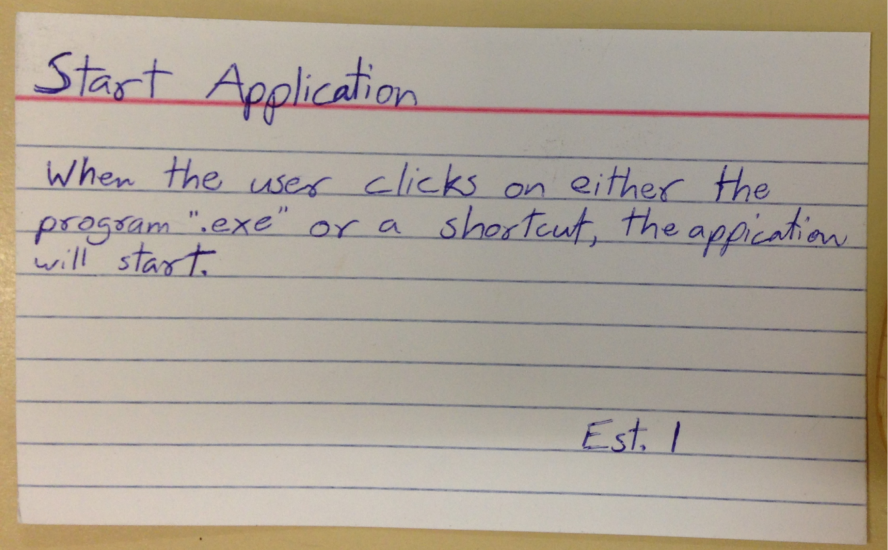 Start Application
When the user clicks on either the
program ".exe" or a shortcut, the appication
will start.
Est. 1